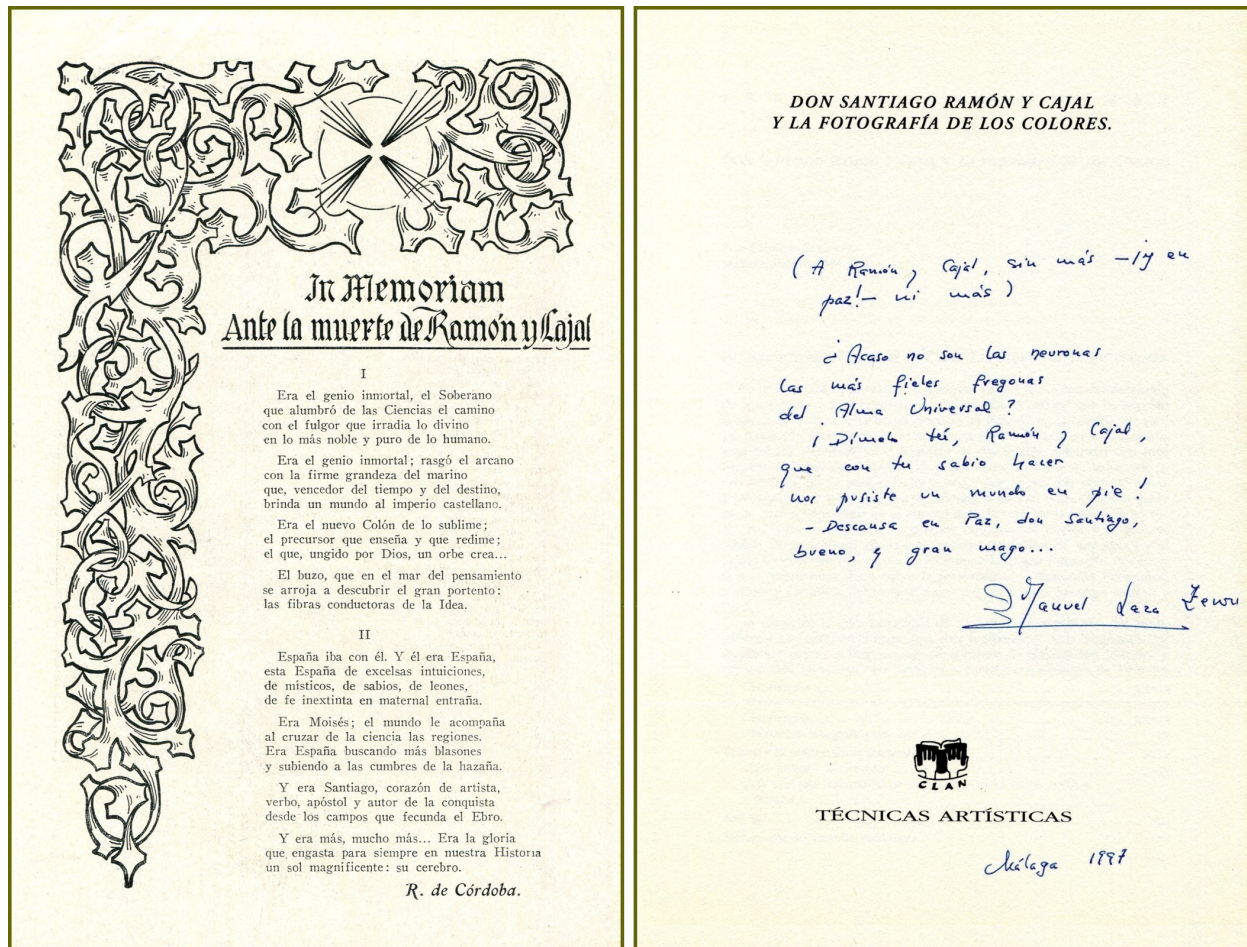 In Memoriam
Ante la muerte de Ramón y Cajal
I
Era el genio inmortal, el Soberano
que alumbró de las Ciencias el camino
con el fulgor que irradia lo divino
en lo más noble y puro de lo humano.
Era el genio inmortal; rasgó el arcano
con la firme grandeza del marino
que, vencedor del tiempo y del destino,
brinda un mundo al imperio castellano.
Era el nuevo Colón de lo sublime;
el precursor que enseña y que redime;
el que, ungido por Dios, un orbe crea...
El buzo, que en el mar del pensamiento
se arroja a descubrir el gran portento:
las fibras conductoras de la Idea.
II
España iba con él. Y él era España,
esta España de excelsas intuiciones,
de místicos, de sabios, de leones,
de fe inextinta en maternal entraña.
Era Moisés; el mundo le acompaña
al cruzar de la ciencia las regiones.
Era España buscando más blasones
y subiendo a las cumbres de la hazaña.
Y era Santiago, corazón de artista,
verbo, apóstol y autor de la conquista
desde los campos que fecunda el Ebro.
Y era más, mucho más... Era la gloria
que engasta para siempre en nuestra Historia
un sol magnificente: su cerebro.
R. de Córdoba.
DON SANTIAGO RAMÓN Y CAJAL
Y LA FOTOGRAFÍA DE LOS COLORES.
(A Ramón y Cajal, sin más –¡y en
paz!– ni más)
¿Acaso no son las neuronas
las más fieles fregonas
del Alma Universal?
¡Dímelo tú, Ramón y Cajal,
que con tu sabio hacer
nos pusiste un mundo en pie!
- Descansa en Paz, don Santiago,
bueno, y gran mago...
Manuel Laza
CLAN
TÉCNICAS ARTÍSTICAS
Málaga 1997